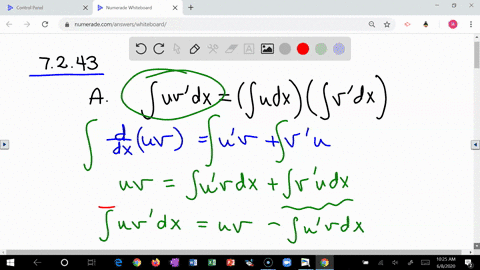 Control Panel
Numerade Whiteboard
numerade.com/answers/whiteboard/
7.2.43
A. ∫uv'dx = (∫udx)(∫v'dx)
∫ d/dx (uv) = ∫u'v + ∫v'u
uv = ∫u'vdx + ∫v'udx
∫uv'dx = uv - ∫u'vdx
10:25 AM
5/8/2020